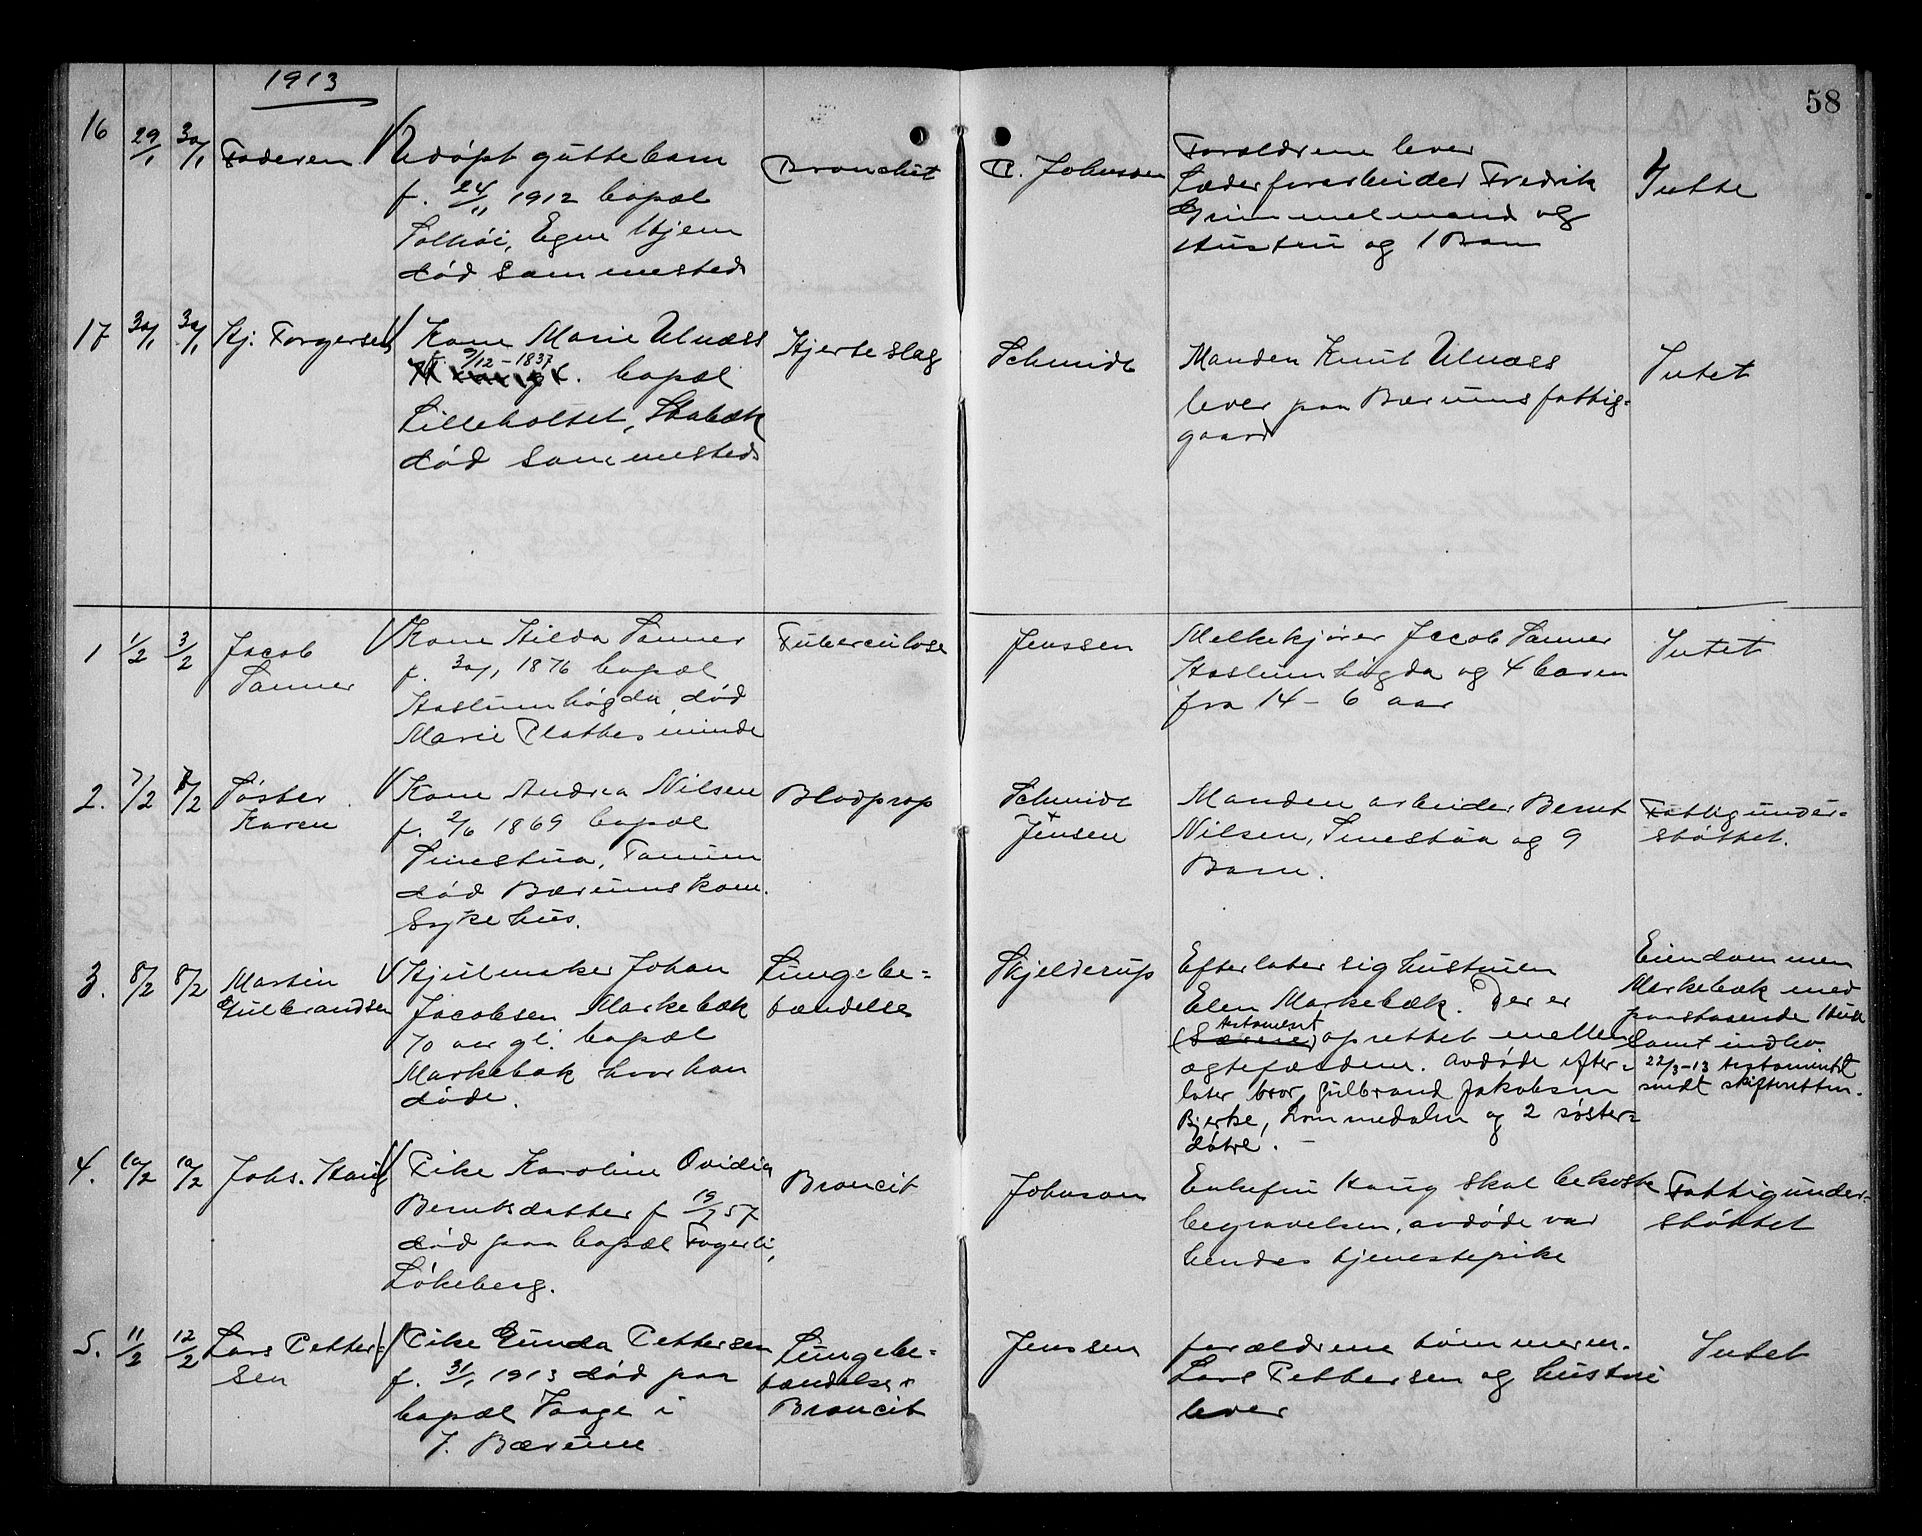 1913
58
16 29/1 30/1 Faderen
Udøpt guttebarn
f. 24/11 1912 bopæl
Solhöi, Egne Hjem
død sammesteds
Bronchit
P. Johnson
Forældrene lever
Læderforarbeider Fredrik
Grimmelmand og
Hustru og 1 Barn
Intte
17 30/1 30/1 Hj. Torgersen
Kone Marie Ulnæss
f. 9/12-1837
bopæl
Lilleholtet, Stabæk
død sammesteds
Hjerteslag
Schmidt
Manden Knut Ulnæss
lever paa Bærums fattig-
gaard
Intet
1 1/2 3/2 Jacob
Sanner
Kone Hilda Sanner
f. 30/1 1876 bopæl
Haslumhøgda død
Marie Plathes minde
Tuberculose
Jenssen
Melkekjører Jacob Sanner
Haslumhøgda og 4 barn
fra 14 - 6 aar
Intet
2. 7/2 8/2 Søster
Karen
Kone Andrea Nilsen
f. 2/6 1869 bopæl
Sinestua, Tanum
død Bærums kom.
Sykehus.
Blodprop
Schmidt
+
Jensen
Manden arbeider Bernt
Nilsen, Sinestua og 9
Barn.
Fattigunder-
støttet.
3. 8/2 8/2 Martin
Gulbrandsen
Hjulmaker Johan
Jacobsen Markebæk
70 aar gl. bopæl
Markebæk hvor han
døde.
Lungebe-
tændelse
Skjelderup
Efterlater sig hustruen
Elen Markebæk. Der er
testament
oprettet mellem
ægtefælderne. Avdøde efter-
later bror Gulbrand Jakobsen
Bjerke, Lommedalen og 2 søster-
døtre.
Eiendommen
Markebæk med
paastaaende Huse
samt indbo.
22/3-13 testamentet
sendt skifteretten.
4. 10/2 10/2 Johs. Haug
Pike Karoline Ovidia
Berntsdatter f 19/7 57
død paa bopæl Fagerli,
Løkeberg.
Broncit
Johnson
Enkefru Haug skal bekoste
begravelsen, avdøde var
hendes tjenestepike
Fattigunder-
støttet
5. 11/2 12/2 Lars Petter-
sen
Pike Gunda Pettersen
f. 31/1 1913 død paa
bopæl Vaage i
V. Bærum
Lungebe-
tændelse +
Broncit
Jenssen
forældrene tømmerm.
Lars Pettersen og hustru
lever
Intet